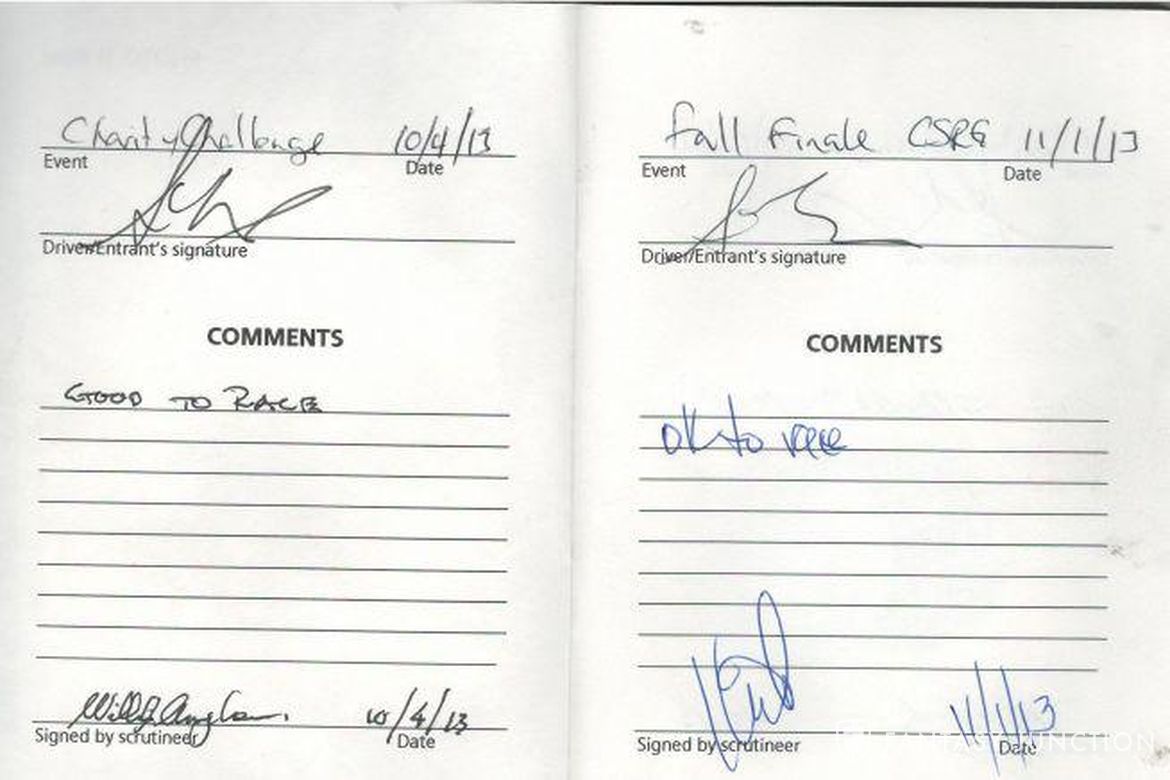 Charity Challenge 10/4/13
Event Date
Driver/Entrant's signature
COMMENTS
GOOD TO RACE
10/4/13
Signed by scrutineer Date
Fall Finale CSRG 11/1/13
Event Date
Driver/Entrant's signature
COMMENTS
ok to race
11/1/13
Signed by scrutineer Date
FANTASY JUNCTION